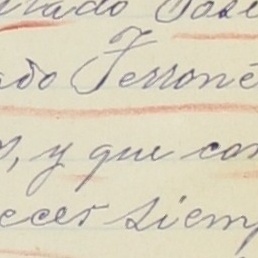 rado José
ado Ferroné
, y que con
ecer siemp